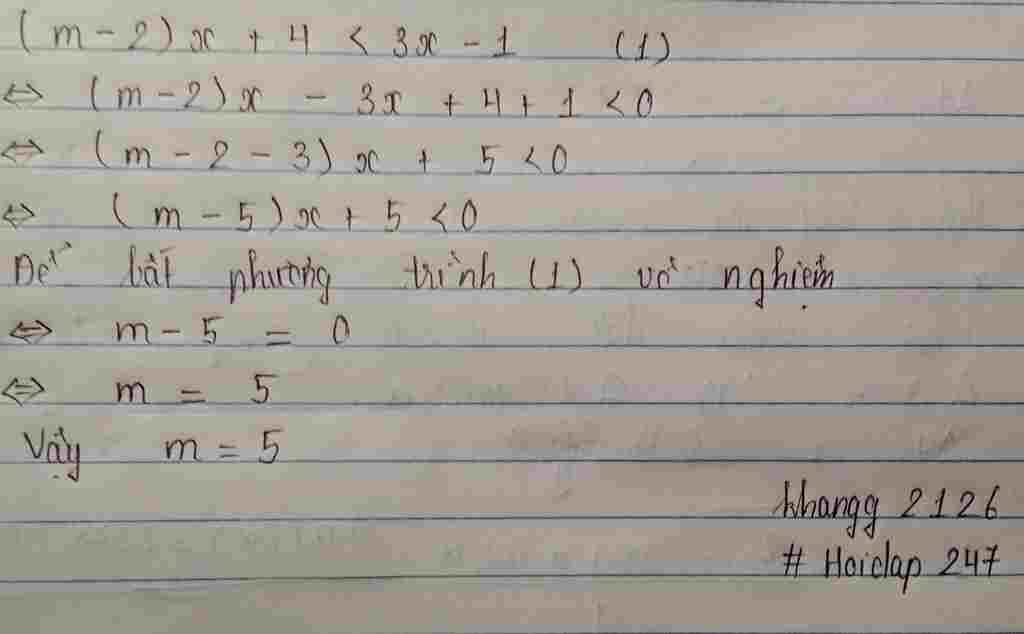 (m-2)x + 4 < 3x - 1 (1)
⇔ (m-2)x - 3x + 4 + 1 < 0
⇔ (m - 2 - 3)x + 5 < 0
⇔ (m - 5)x + 5 < 0
Để bất phương trình (1) vô nghiệm
⇔ m - 5 = 0
⇔ m = 5
Vậy m = 5
khangg 2126
# Hoidap 247